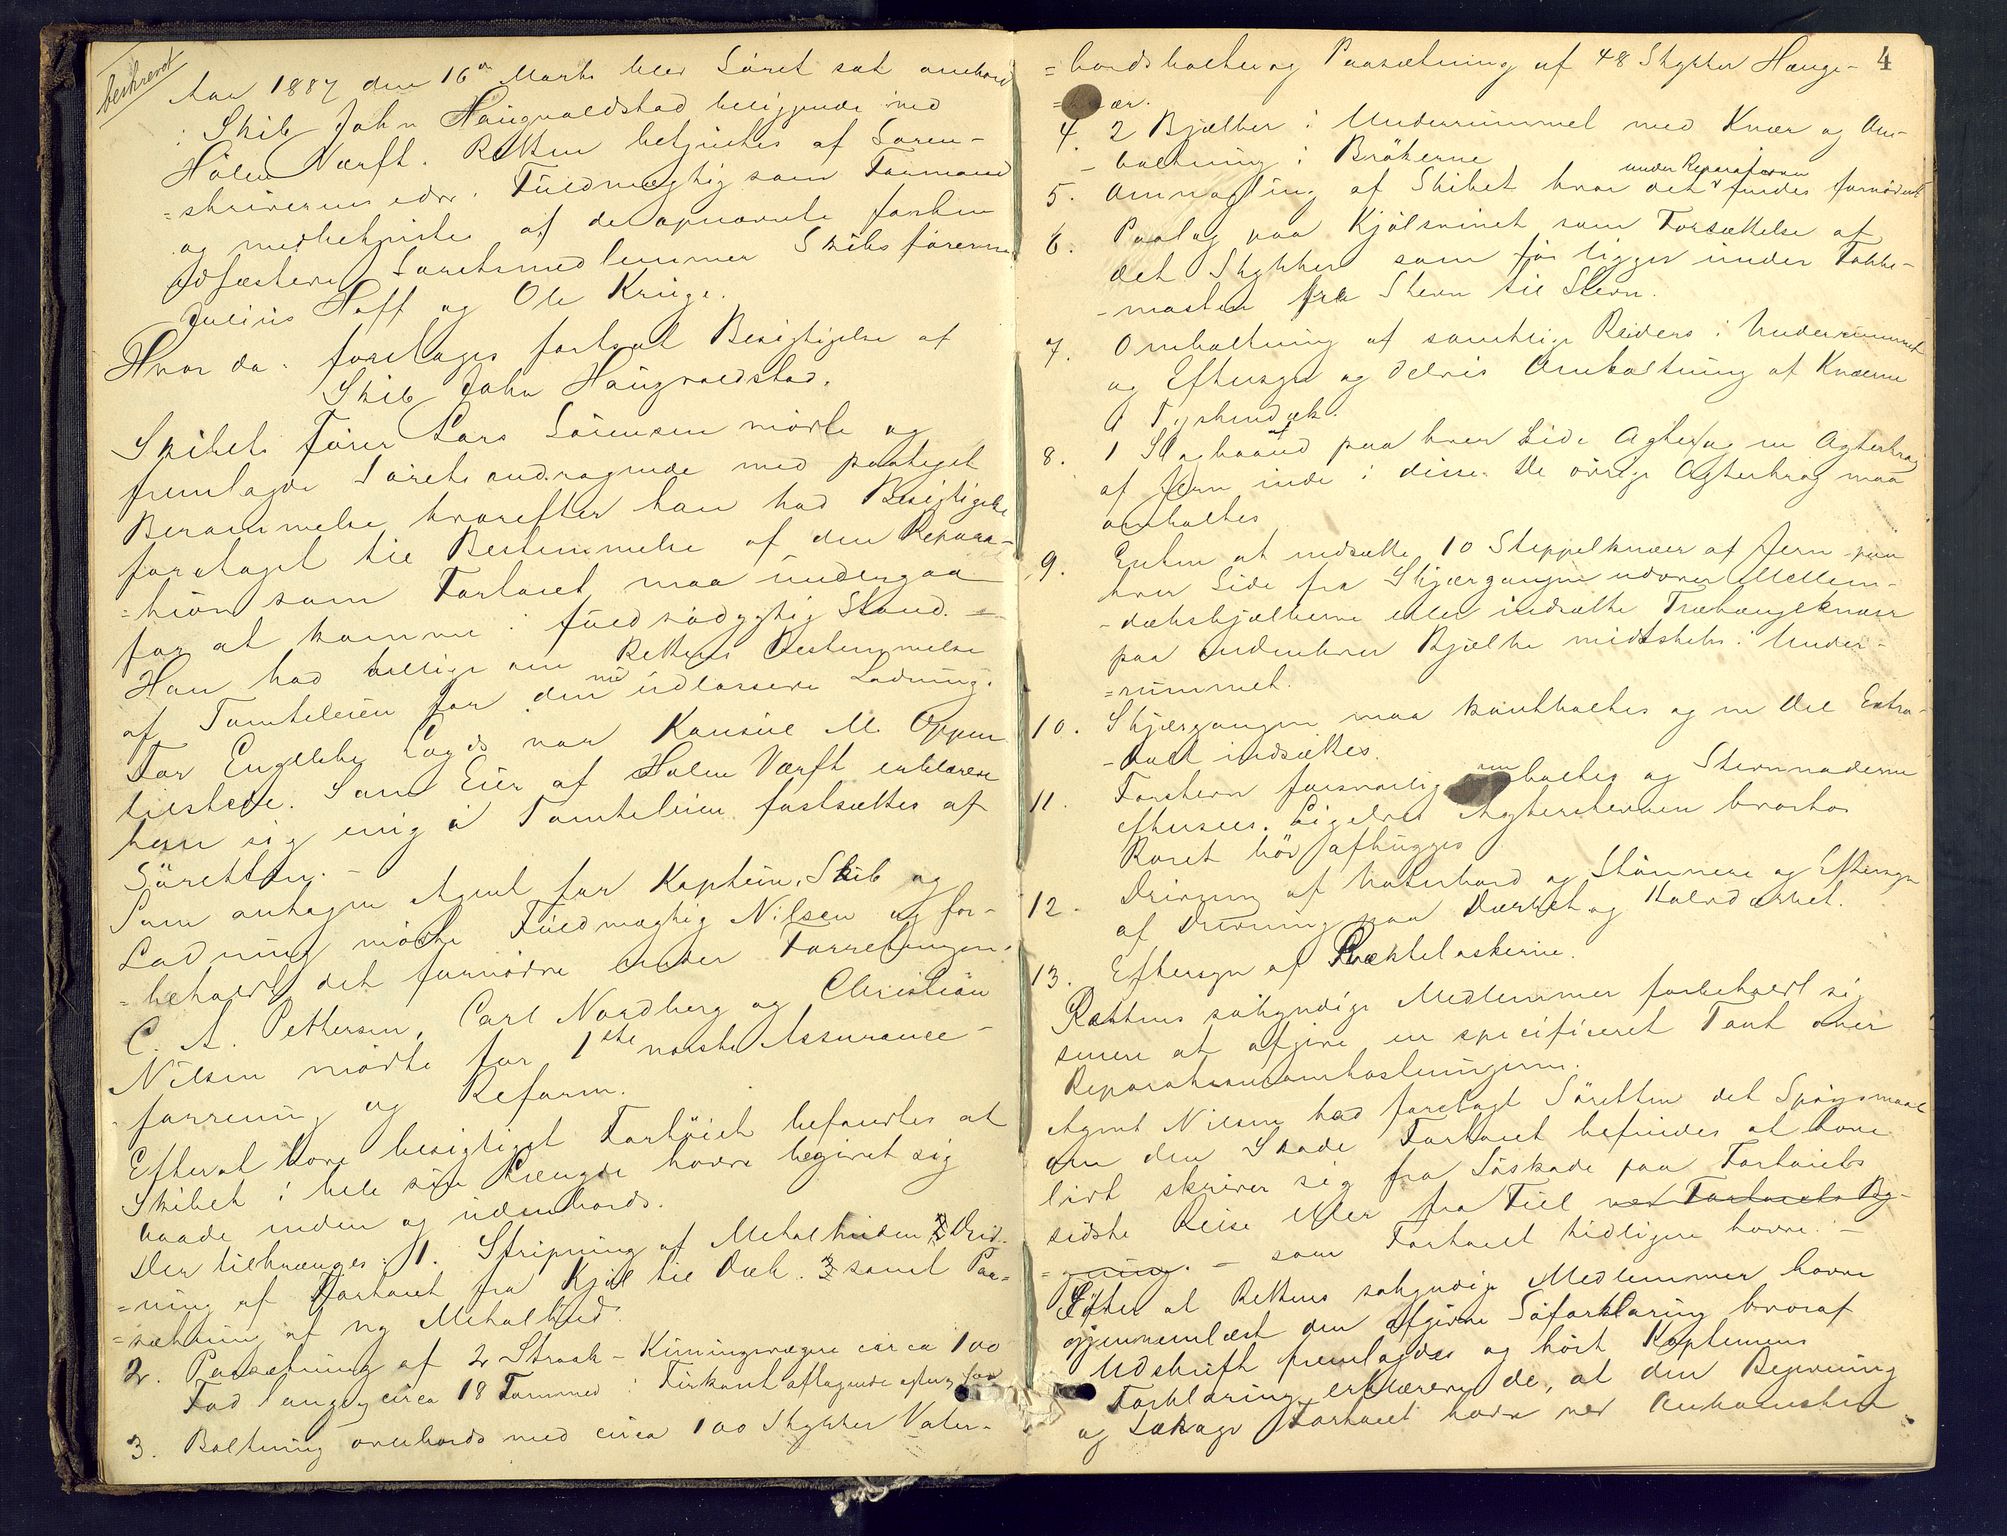 beskrevet
Aar 1887 den 16de Marts blev Söret sat ombord
i Skib John Haugvaldstad beliggende ved
Holen Værft. Retten betjentes af Soren-
=skriverens edsv. Fuldmægtig som Formand
og medbetjentes af de opnævnte forhen
edfæstede Söretsmedlemmer Skibsförerne
Julius Hoff og Ole Krüge.
Hvor da: foretages fortsat Besigtigelse af
Skib John Haugvaldstad.
Skibets Förer Lars Sörensen mödte og
fremlagde Sörets andragende med paateget
Berammelse hvorefter han bad Besigtigelse
foretaget til Bestemmelse af den Repara-
=tion som Fartöiet maa undergaa
for at komme i fuld södygtig Stand. -
Han bad tillige om Rettens Bestemmelse
af Tomteleien for den nu udlossede Ladning.
For Engelske Loyds var Konsul M. Oppen
tilstede. Som Eier af Holen Værft erklærede
han sig enig i Tomteleien fastsættes af
Söretten. -
Som antagen Agent for Kaptein, Skib og
Ladning mödte Fuldmægtig Nilsen og for-
=beholdt det fornödne under Forretningen.
C. A. Pettersen, Carl Nordberg og Christian
Nilsen mödte for 1ste norske Assurance-
forening og Reform.
Efterat have besigtiget Fartöiet befandtes at
Skibet i hele sin Længde havde begivet sig
baade inden og udenbords.
Der tiltrænges: 1. Stripning af Metalhuden 2 Driv-
=ning af Fartöiet fra Kjöl til Dæk. 3 samt Paa-
=sætning af ny Metalhud.
2. Paasætning af 2 Strook-Kimingsvægere circa 100
Fod lange, circa 18 Tommer i Firkant aftagende efter for
3. Boltning ovenbords med circa 100 Stykker Vater-
4
=bordsbolter og Paasætning af 48 Stykker Hænge-
=knær.
4. 2 Bjælker i Underrummet med Knær og Om-
-boltning i Brökerne
5. Omnagling af Skibet hvor det under Reparationen findes fornödent
6. Paalag paa Kjölsvinet som Forsættelse af
det Stykke som för ligger under Fokke-
-masten fra Stevn til Stevn.
7. Omboltning af samtlige Reiders i Underrummet
og Eftersyn og delvis Omboltning af Knærne
i Tyskendæk.
8. 1 Slagbaand paa hver Side Agter og en Agterkrag
af Jern inde i disse. De övrige Agterkrag maa
omboltes
9. Enten at nedsætte 10 Steppelknær af Jern paa
hver Side fra Skjærgangen udover Mellem-
-dæksbjælkerne eller indsætte Træhængeknær
paa andenhver Bjælke midtskibs i Under-
=rummet.
10. Skjærgangen maa kantboltes og en Del Extra-
-bolt indsættes.
11. Forstevn forsvarlig omboltes og Stevnnaderne
eftersees. Ligeledes Agterstevnen hvorhos
Roret bör afhugges
12. Drivning af Vaterbord og Stönnere og Eftersyn
af Drivning paa Dækket og Halvdækket.
13. Eftersyn af Ræktelaskerne.
Rettens sökyndige Medlemmer forbeholdt sig
senere at afgive en specificeret Taxt over
Reparationsomkostningerne.
Agent Nilsen bad forelagt Söretten det Spörgsmaal
om den Skade Fartöiet befindes at have
lidt skriver sig fra Söskade paa Fartöiets
sidste Reise eller fra Feil ved Fartöiets Byg-
=ning. - som Fartöiet tidligere havde. -
Efter at Rettens sökyndige Medlemmer havde
gjennemlæst den afgivne Söforklaring hvoraf
Udskrift fremlagdes og hört Kapteinens
Forklaring erklærede de, at den Begivning
og Lækage Fartöiet havde ved Ankomsten